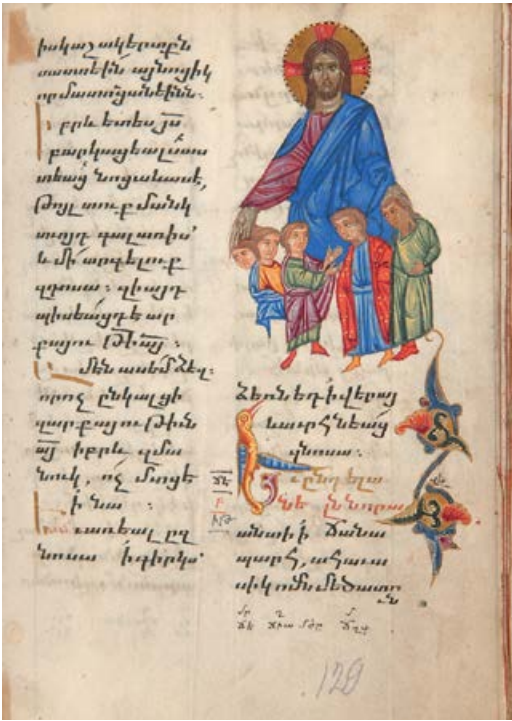 իսկ աշակերտքն
սաստէին այնոցիկ
որ մատուցանէինն։
Իբրև ետես յս
բարկացեալ սաս
տեաց նոցա և ասէ,
Թոյլ տուք մանկ
տոյդ գալ առ իս՝
և մի արգելուք
զդոսա։ զի այդ
պիսեացդ է ար
քայու թի այ։
Ամէն ասեմ ձեզ։
որ ոչ ընկալցի
զարքայութիւն
այ իբրև զմա
նուկ, ոչ մտցէ
ի նա։
Եւ առեալ ըզ
նոսա ի գիրկս՝
ձեռն եդ ի վերայ
և աւրհնեաց
զնոսա։
Եւ ընդ ելա
նել նորա
անտի ի ճանա
պարհ, ահաւա
սիկ ոմն մեծատո
ւն
120